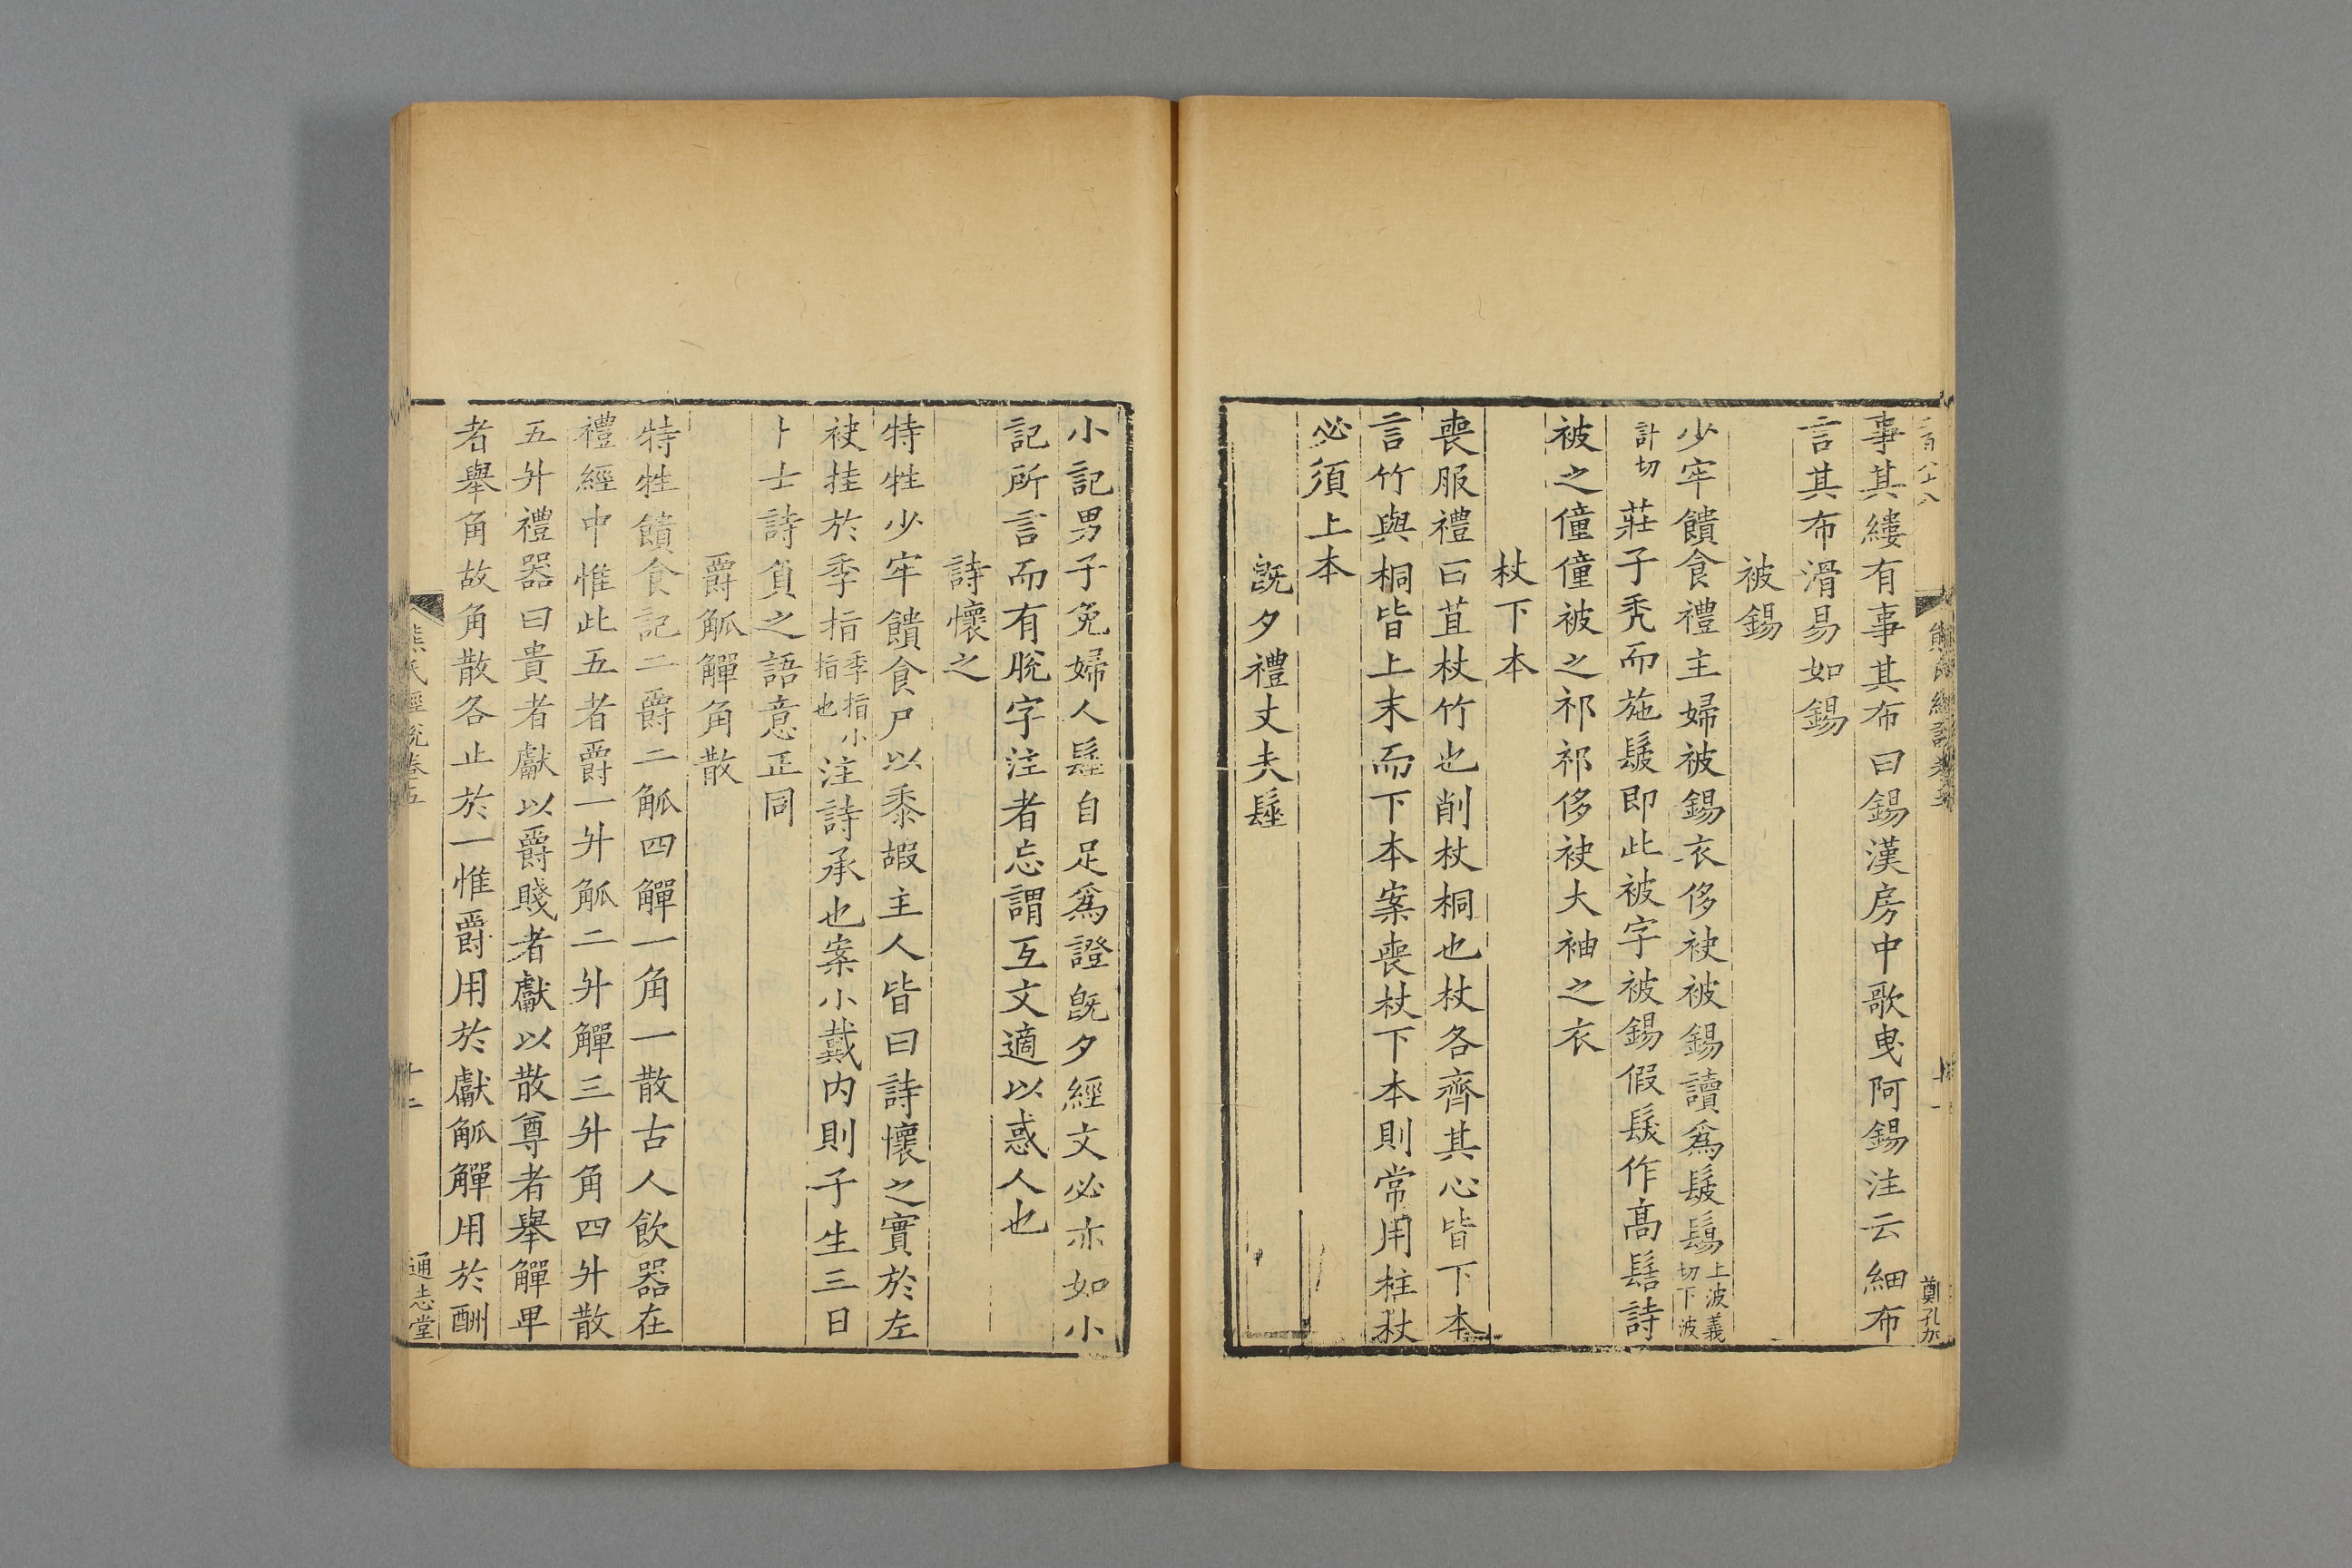 事其縷有事其布曰錫漢房中歌曳阿錫注云細布
言其布滑易如錫
被錫
少牢饋食禮主婦被錫衣侈袂被錫讀爲髲鬄上波義切下波
計切莊子禿而施髢即此被字被錫假髮作髙髻詩
被之僮僮被之祁祁侈袂大袖之衣
杖下本
喪服禮曰苴杖竹也削杖桐也杖各齊其心皆下本
言竹與桐皆上末而下本案喪杖下本則常用柱杖
必須上本
旣夕禮丈夫髽
小記男子免婦人髽自足爲證旣夕經文必亦如小
記所言而有脫字注者忘謂互文適以惑人也
詩懷之
特牲少牢饋食尸以黍嘏主人皆曰詩懷之實於左
袂挂於季指季指小指也注詩承也案小戴内則子生三日
卜士詩負之語意正同
爵觚觶角散
特牲饋食記二爵二觚四觶一角一散古人飲器在
禮經中惟此五者爵一升觚二升觶三升角四升散
五升禮器曰貴者獻以爵賤者獻以散尊者舉觶卑
者舉角故角散各止於一惟爵用於獻觚觶用於酬
熊氏經說卷五
十二
通志堂